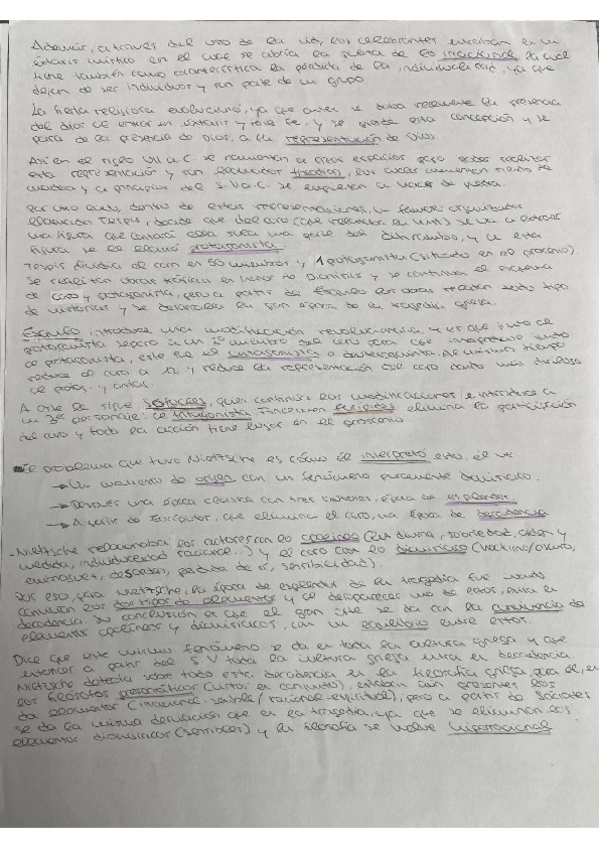 Además, a través del uso de la vid, los celebrantes entraban en un
éxtasis místico en el que se abría la puerta de lo irracional, la cual
tiene también como característica la pérdida de la individualidad, ya que
dejan de ser individuos y son parte de un grupo.
La fiesta religiosa evolucionó, ya que antes se tenía realmente la presencia
del dios al entrar en éxtasis y se pierde esta concepción y se
pasa de la presencia de Dios, a la representación de Dios.
Así en el siglo VI a.C. se comienzan a crear espacios para poder realizar
esta representación y son llamados theatron, los cuales comienzan siendo de
madera y a principios del S.V a.C. se empiezan a hacer de piedra.
Por otro lado, dentro de estas representaciones, un
Tespis, decide que del coro se va a extraer
una figura que contará ella sola una parte del ditirambo, y a esta
figura se le llamó protagonista.
Tespis de coro en 50 miembros y 1 protagonista (situado en el proscenio)
Se realizan obras trágicas en honor de Dionisos y se continua el esquema
de coro y protagonista, pero a partir de Esquilo las obras de todo tipo
de historias y se desarrolla la gran época de la tragedia griega.
Esquilo introduce una modificación revolucionaria, y es que junto al
protagonista separa a un 2º miembro del coro para que junto
al protagonista, este fue el antagonista o deuteragonista. Al mismo tiempo
reduce el coro a 12 y reduce la representación del coro
de poetas y cantos.
A este le sigue Sófocles, quien continúa las modificaciones e introduce a
un 3er personaje: el tritagonista. Eurípides elimina la participación
del coro y toda la acción tiene lugar en el proscenio.
El problema que tuvo Nietzsche es cómo él interpretó esto, él ve
→ Un momento de origen con un fenómeno puramente dionisíaco.
→ Después una época clásica con tres autores, época de esplendor.
→ A partir de Eurípides, que elimina el coro, una época de decadencia
- Nietzsche relacionaba los actores con lo apolíneo (luz diurna, sobriedad, orden y
medida, individualidad racional...) y el coro con lo dionisíaco (nocturno/oscuro,
embriaguez, desorden, pérdida de sí, sensibilidad).
Por eso, para Nietzsche, la época de esplendor de la tragedia fue cuando
convivían los dos tipos de elementos y al desaparecer uno de estos, entra en
decadencia. Su conclusión es que el gran arte se da con la convivencia de
elementos apolíneos y dionisíacos, con un equilibrio entre estos.
Dice que este mismo fenómeno se da en toda la cultura griega y que
entonces a partir del S.V toda la cultura griega entra en decadencia.
Nietzsche detecta sobre todo esta decadencia en la filosofía griega, para él, en
los filósofos presocráticos (vistos en conjunto), estaban aún presentes los
dos elementos (irracional-sensible / racional-espiritual), pero a partir de Sócrates
se da la misma desviación que en la tragedia, ya que se eliminan los
elementos dionisíacos (sensibles) y la filosofía se vuelve hiperracional